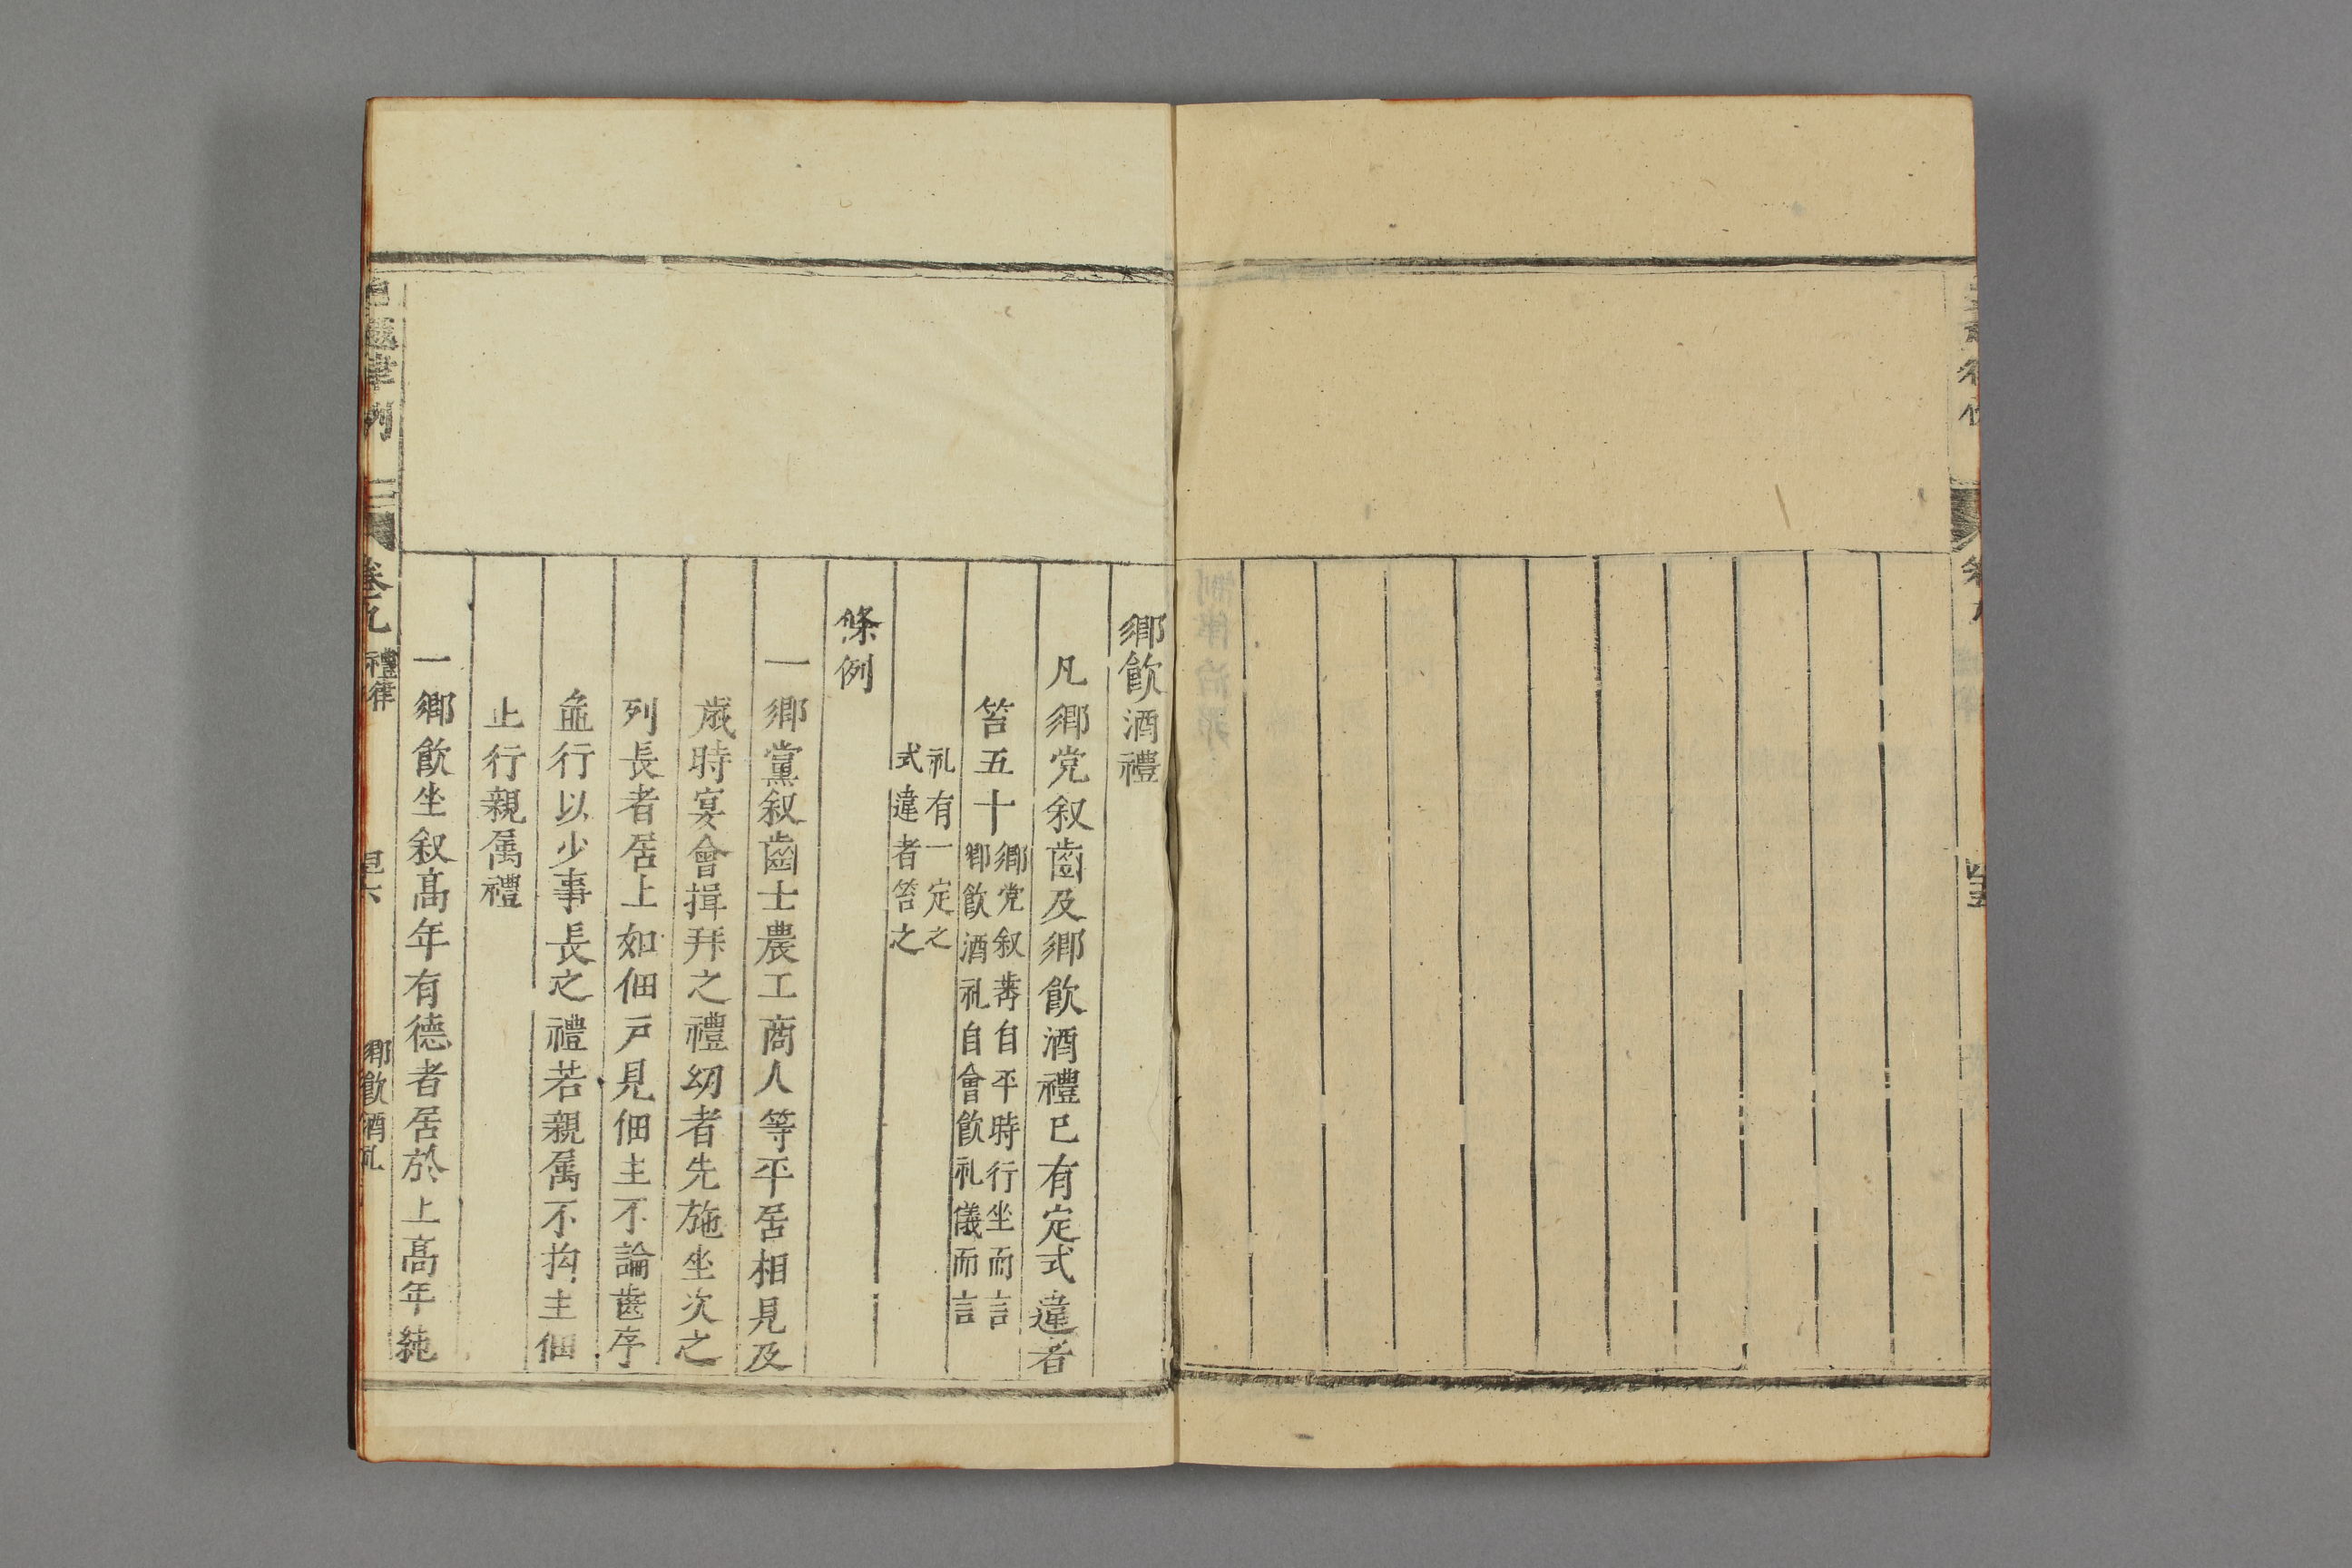 鄉飲酒禮
凡鄉党叙齒及鄉飲酒禮已有定式違者
笞五十鄉党叙齒自平時行坐而言
鄉飲酒礼自會飲礼儀而言
礼有一定之
式違者笞之
條例
一鄉黨叙齒士農工商人等平居相見及
歲時宴會揖拜之禮幼者先施坐次之
列長者居上如佃戸見佃主不論齒序
並行以少事長之禮若親属不拘主佃
止行親属禮
一鄉飲坐叙高年有德者居於上高年純
律例
卷九
禮律
鄉飲酒礼